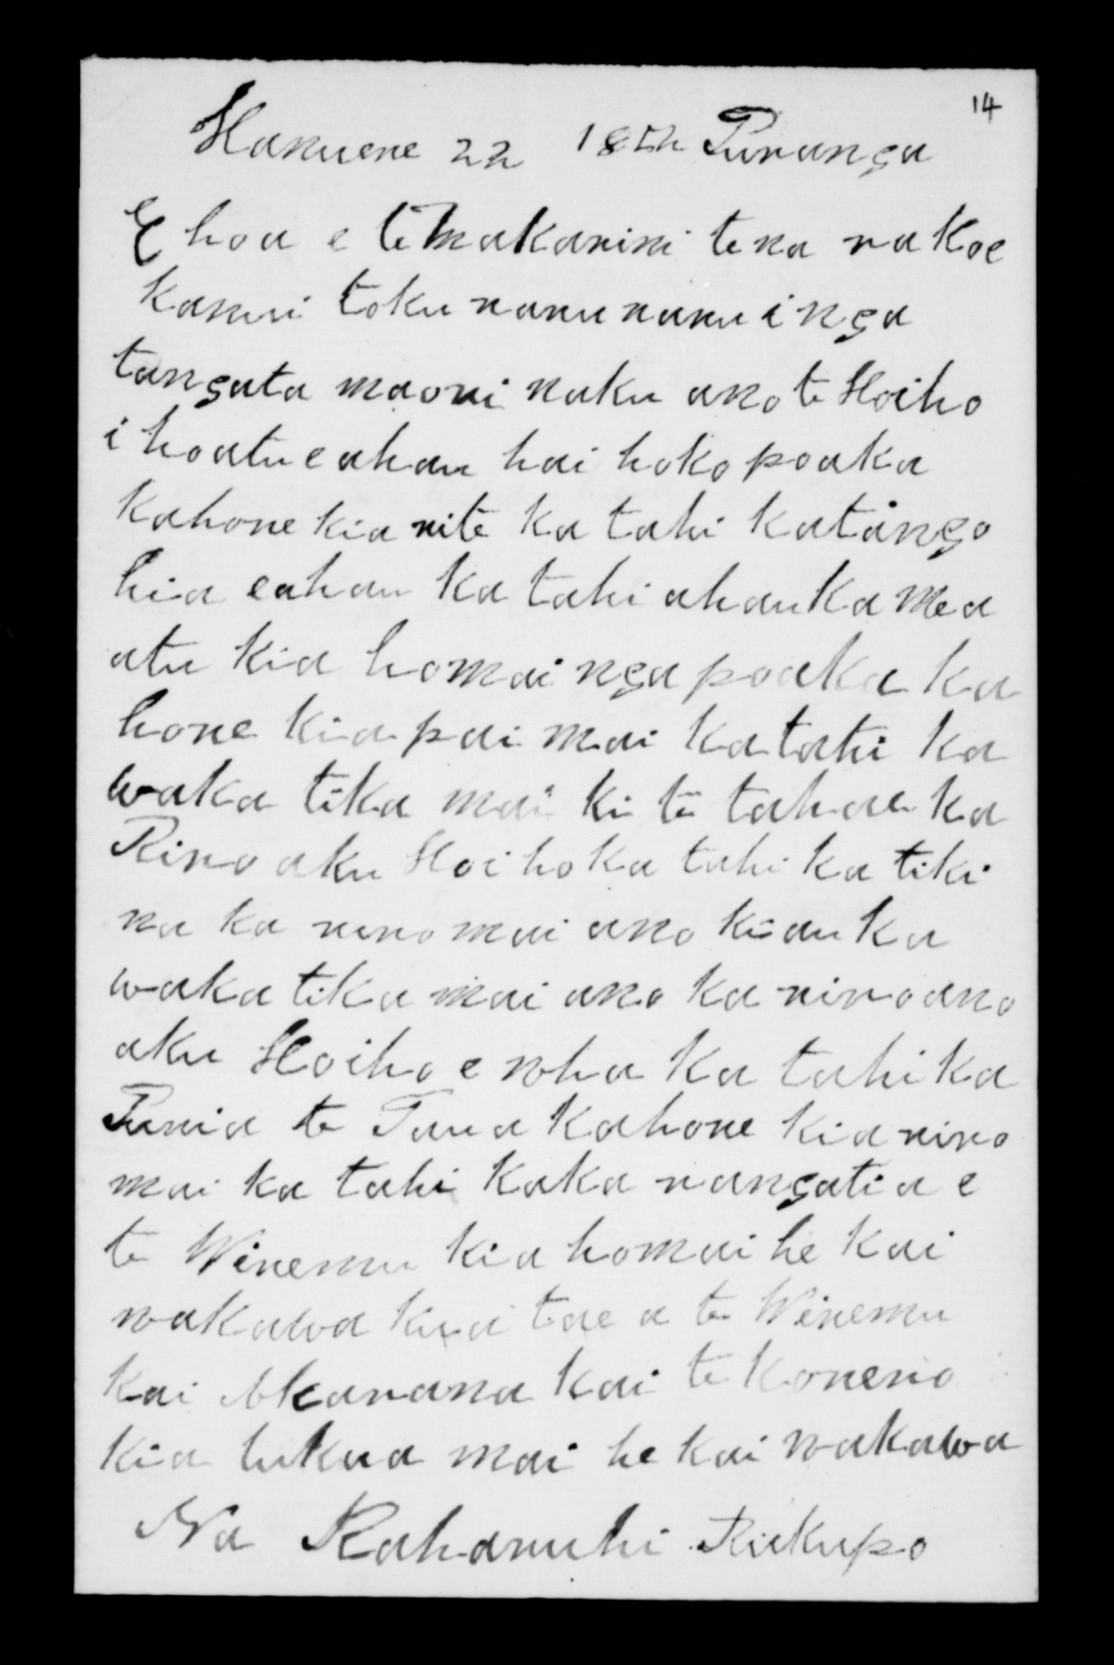 14
Hanuere 22 1852 Turanga
E hoa e te Makarini tena ra koe
kanui toku nanunanu i nga
tangata maori naku ano te Hoiho
i hoatu e ahau hai hoko poaka
kahore kia rite ka tahi katango
hia eahau ka tahi ahau ka mea
atu kia homai nga poaka ka
hore kia pai mai katahi ka
waka tika mai ki te tahae ka
Riro aku Hoiho ka tahi ka tiki
na ka riro mai ano kiau ka
waka tika mai ano ka riro ano
aku Hoiho e wha ka tahi ka
Turia te Taua kahore kia riro
mai ka tahi kaka rangatia e
te Wiremu kia homai he kai
wakawa kua tae a te Wiremu
kai Akarana kai te Koreno
kia tukua mai he kai wakawa
Na Raharuhi Rukupo